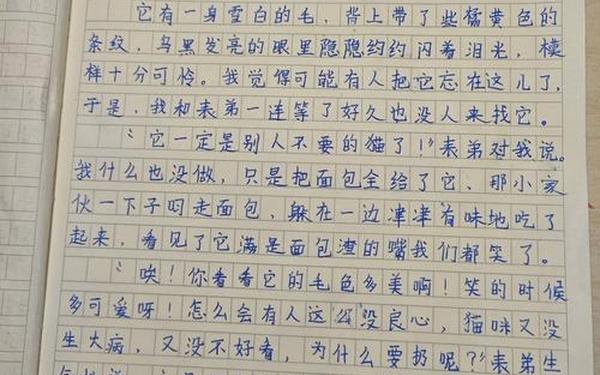 它有一身雪白的毛，背上带了些橘黄色的
条纹，乌黑发亮的眼里隐隐约约闪着泪光，模
样十分可怜。我觉得可能有人把它忘在这儿了，
于是，我和表弟一连等了好久也没人来找它。
“它一定是别人不要的猫了！”表弟对我说。
我什么也没做，只是把面包全给了它、那小家
伙一下子叼走面包，躲在一边津津有味地吃了
起来，看见了它满是面包渣的嘴我们都笑了。
“唉！你看看它的毛色多美啊！笑的时候
多可爱呀！怎么会有人这么没良心，猫咪又没
生大病，又没不好看，为什么要扔呢？”表弟生